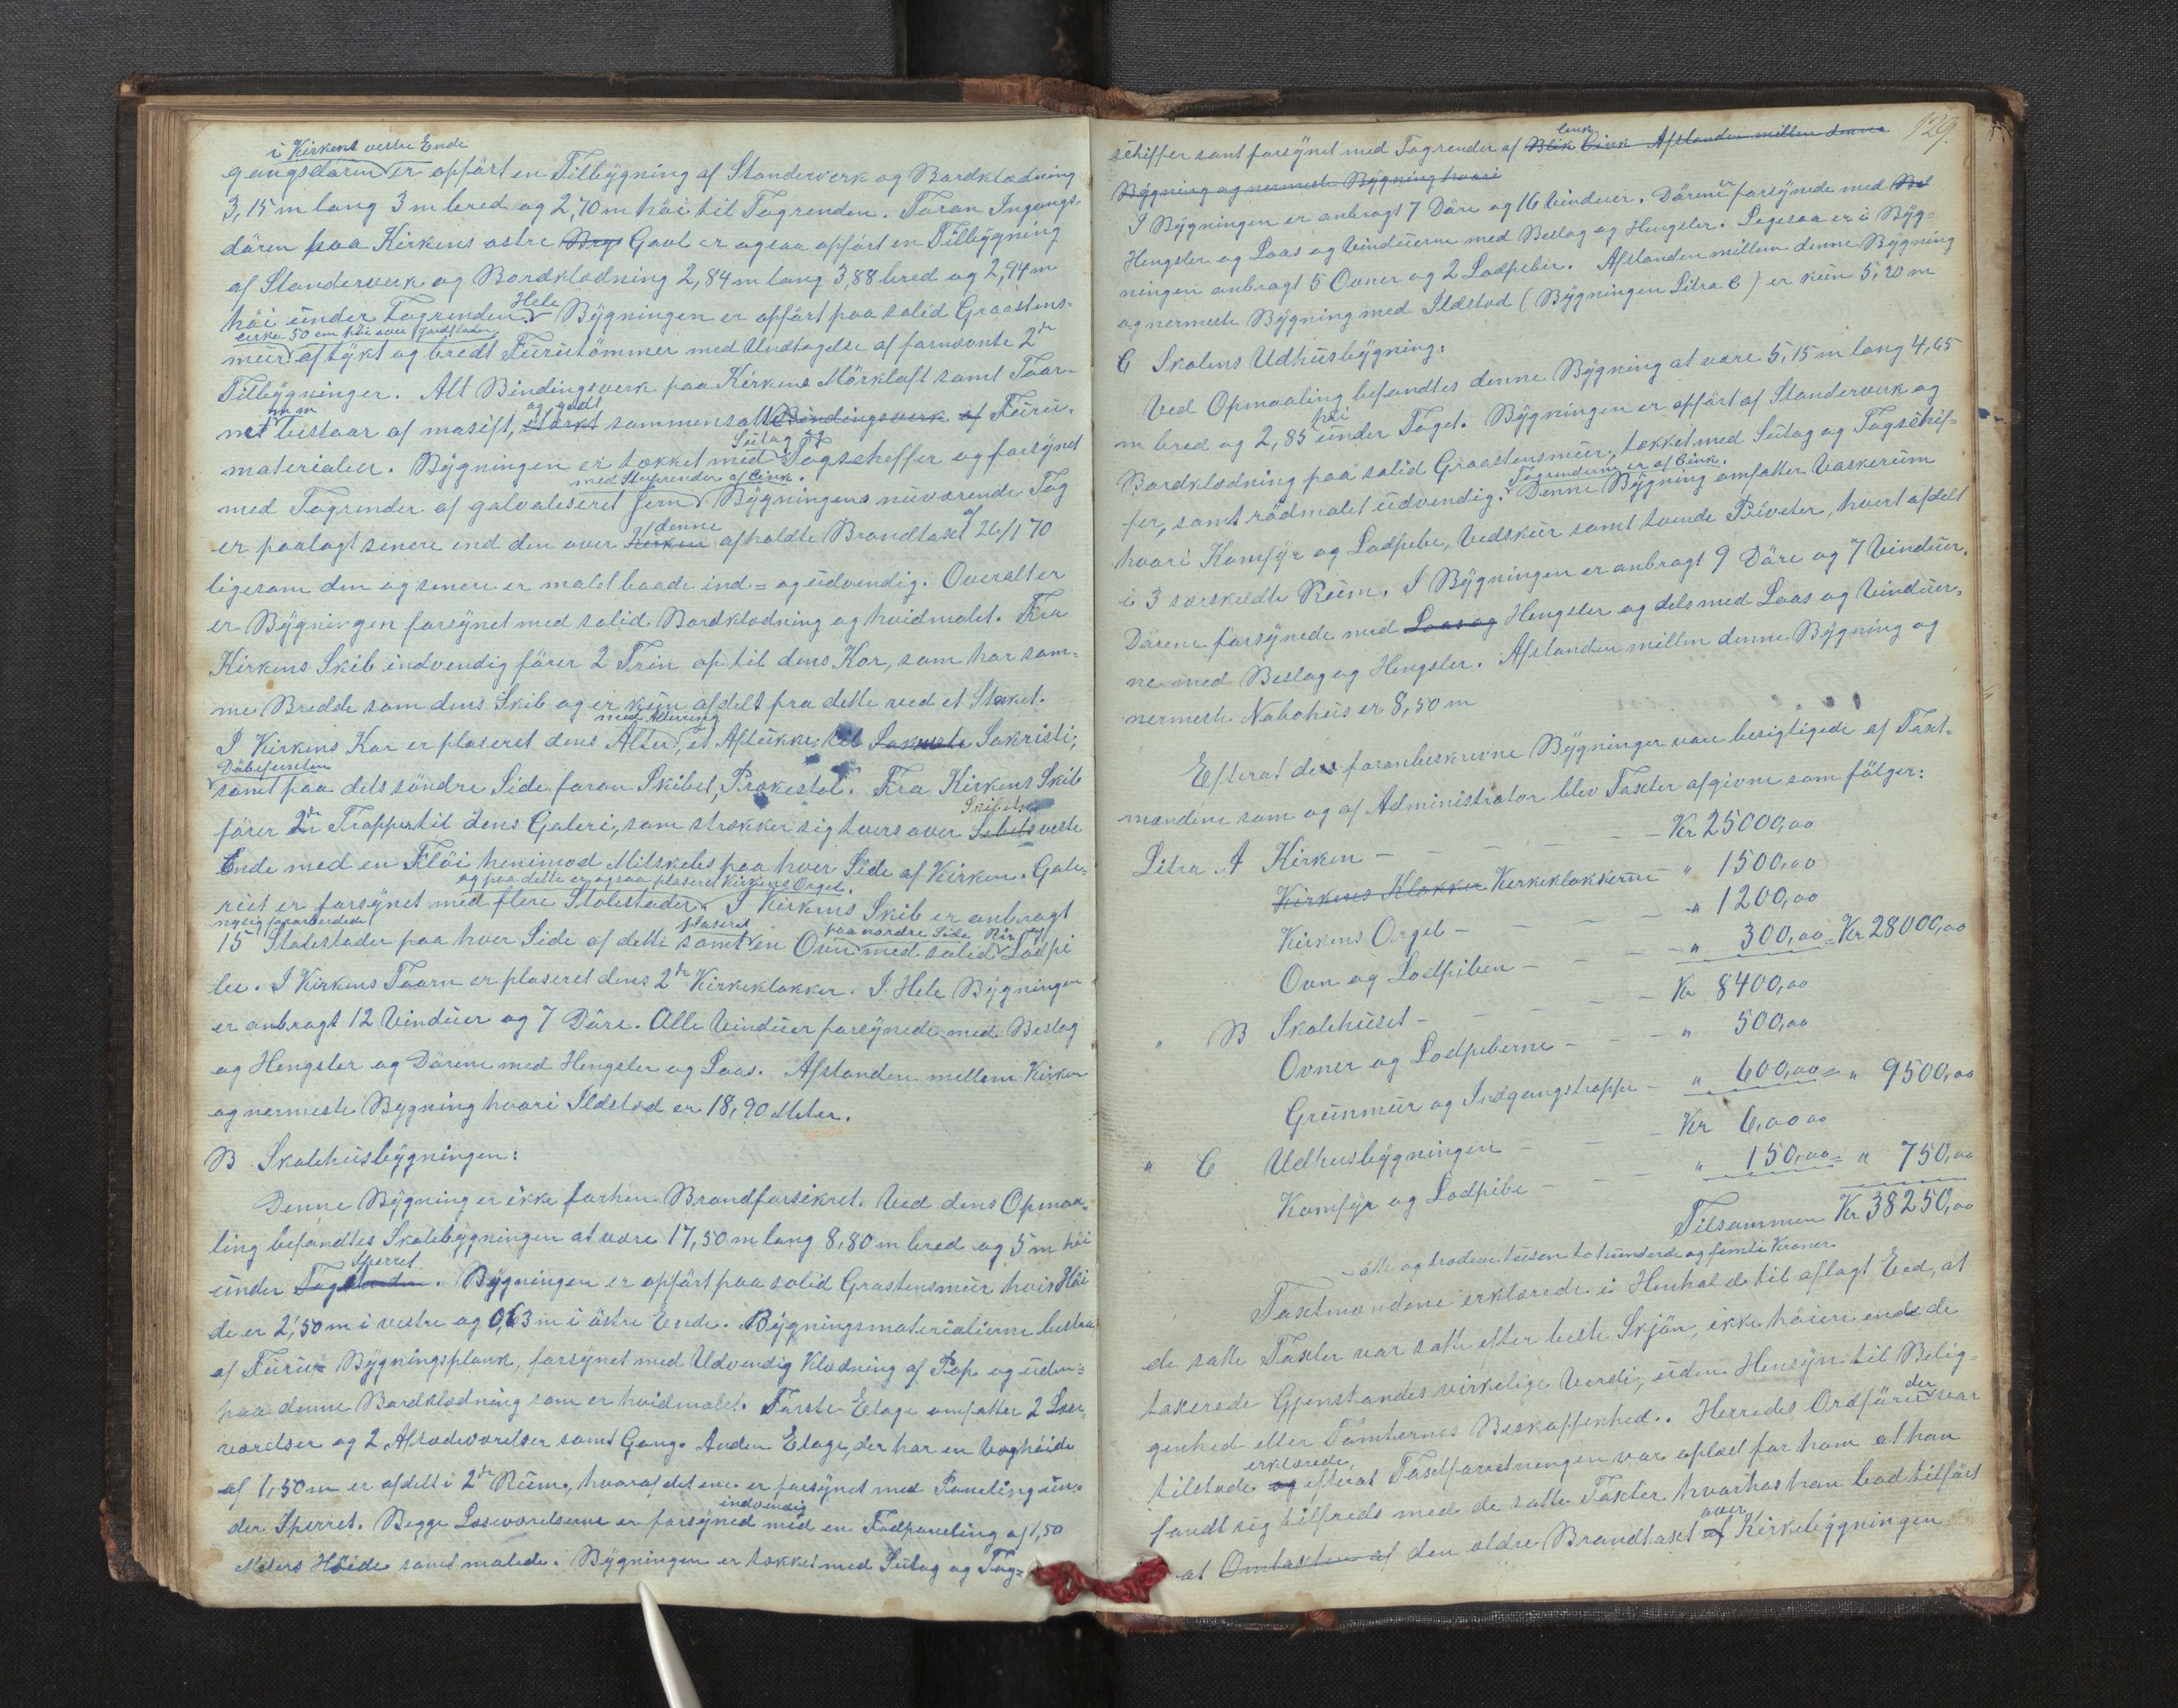 i Kirkens vestre Ende
gangsdören er opfört en Tilbygning af Standerverk og Bordklædning
3,15 m lang 3 m bred og 2,70 m höi til Tagrenden. Foran Ingangs-
dören paa Kirkens östre Gavl er ogsaa opfört en Tilbygning
af Standerverk og Bordklædning 2,84 m lang 3,88 bred og 2,94 m
höi under Tagrenden. Hele Bygningen er opfört paa solid Graastens-
cirka 50 cm höi over Jordfladen
mur af tykt og bredt Furutömmer med Undtagelse af fornævnte 2de
Tilbygninger. Alt Bindingsverk paa Kirkens Mörkloft samt Taar-
net m m bestaar af masift, stærkt og godt sammensatte Bindingsverk af Furu-
materialier. Bygningen er tækket med Sutag og Tagscheffer og forsynet
med Tagrender af galvaliseret Jern med Stuprender af Cink. Bygningens nuværende Tag
er paalagt senere end den over Kirken denne afholdte Brandtaxt af 26/1 70
ligesom den og senere er malet baade ind= og udvendig. Overalt er
er Bygningen forsynet med solid Bordklædning og hvidmalet. Fra
Kirkens Skib indvendig förer 2 Trin op til dens Kor, som har sam-
me Bredde som dens Skib og er kun afdelt fra dette ved et Staket.
I Kirkens Kor er plaseret dens Alter med Altering, et Aflukke til Sakriste Sakristi,
Döbefunten
samt paa dets söndre Side foran Skibet, Prækestol. Fra Kirkens Skib
förer 2de Trapper til dens Galeri, som strækker sig tvers over Skibets vestre
Ende med en Flöi henimod Mitskebs paa hver Side af Kirken. Gale-
riet er forsynet med flere Stolestader og paa dette er ogsaa plaseret Kirkens Orgel. I Kirkens Skib er anbragt
15 nylig forarbeidede Stolestader paa hver Side af dette samt plaseret en Ovn paa nordre Side med solid Rör og Lodpi
be. I Kirkens Taarn er plaseret dens 2de Kirkeklokker. I Hele Bygningen
er anbragt 12 Vinduer og 7 Döre. Alle Vinduer forsynede med Beslag
og Hengsler og Dörene med Hengsler og Laas. Afstanden mellem Kirken
og nermeste Bygning hvori Ildsted er 18,90 Meter.
B Skolehusbygningen:
Denne Bygning er ikke forhen Brandforsikret. Ved dens Opmaa-
ling befandtes Skolebygningen at være 17,50 m lang 8,80 m bred og 5 m höi
under Sperret. Bygningen er opfört paa solid Grastensmur hvis Höi
de er 2,50 m i vestre og 0,63 m i östre Ende. Bygningsmaterialierne bestaa
af Furu= Bygningsplank, forsynet med Udvendig Klædning af Pap og uden=
paa denne Bordklædning som er hvidmalet. Förste Etage omfatter 2 Læse-
værelser og 2 Aftrædeværelser samt Gang. Anden Etage, der har en Væghöide
af 1,50 m er afdelt i 2de Rum, hvoraf det ene er forsynet med Paneling un-
der Sperret. Begge Læseværelserne er forsyned indvendig med en Fodpaneling af 1,50
Meters Höide samt malede. Bygningen er tækket med Sutag og Tag=
129.
schiffer samt forsynet med Tagrender af Blik Cink Afstanden mellem denne
Bygning og nermeste Bygning hvori
I Bygningen er anbragt 7 Döre og 16 Vinduer. Dörene er forsynede med Bes
Hengsler og Laas og Vinduerne med Beslag og Hengsler. Ligesaa er i Byg=
ningen anbragt 5 Ovner og 2 Lodpiber. Afstanden mellem denne Bygning
og nermeste Bygning med Ildsted (Bygningen Litra C) er kun 5,20 m
C Skolens Udhusbygning:
Ved Opmaaling befandtes denne Bygning at være 5,15 m lang 4,65
m bred og 2,85 höi under Taget. Bygningen er opfört af Standerverk og
Bordklædning paa solid Graastensmur, tækket med Sutag og Tagschif-
fer, samt rödmalet udvendig. Tagrenderne er af Cink. Denne Bygning omfatter Vaskerum
hvori Komfyr og Lodpibe, Vedskur samt tvende Priveter, hvert afdelt
i 3 særskeldte Rum. I Bygningen er anbragt 9 Döre og 7 Vinduer.
Dörene forsynede med Laas og Hengsler og dels med Laas og Vinduer-
ne med Beslag og Hengsler. Afstanden mellem denne Bygning og
nermeste Nabohus er 8,50 m
Efterat de foranbeskrevne Bygninger vare besigtigede af Taxt-
mændene som og af Administrator blev Taxter afgivne som fölger:
Litra A Kirken — Kr 25000,00
Kirkens Klokker Kirkeklokkerne " 1500,00
Kirkens Orgel — " 1200,00
Ovn og Lodpiben — " 300,00 = Kr 28000,00
" B Skolehuset — Kr 8400,00
Ovner og Lodpeberne — " 500,00
Grunmur og Indgangstrappe — " 600,00 = " 9500,00
" C Udhusbygningen — Kr 6,00 00
Komfyr og Lodpibe — " 150,00 = " 750,00
Tilsammen Kr 38250,00
— otte og tredeve tusen to hunderde og femti Kroner
Taxtmændene erklærede i Henhold til aflagt Eed, at
de satte Taxter var satte efter beste Skjön, ikke höiere end de
taxerede Gjenstandes virkelige Verdi, uden Hensyn til Belig-
genhed eller Tomternes Beskaffenhed. Herredes Ordförer der var
tilstede og erklærede, efterat Taxtforretningen var oplæst for ham at han
fandt sig tilfreds med de satte Taxter hvorhos han bad tilfört
at Omtaxten af den ældre Brandtaxt af over Kirkebygningen